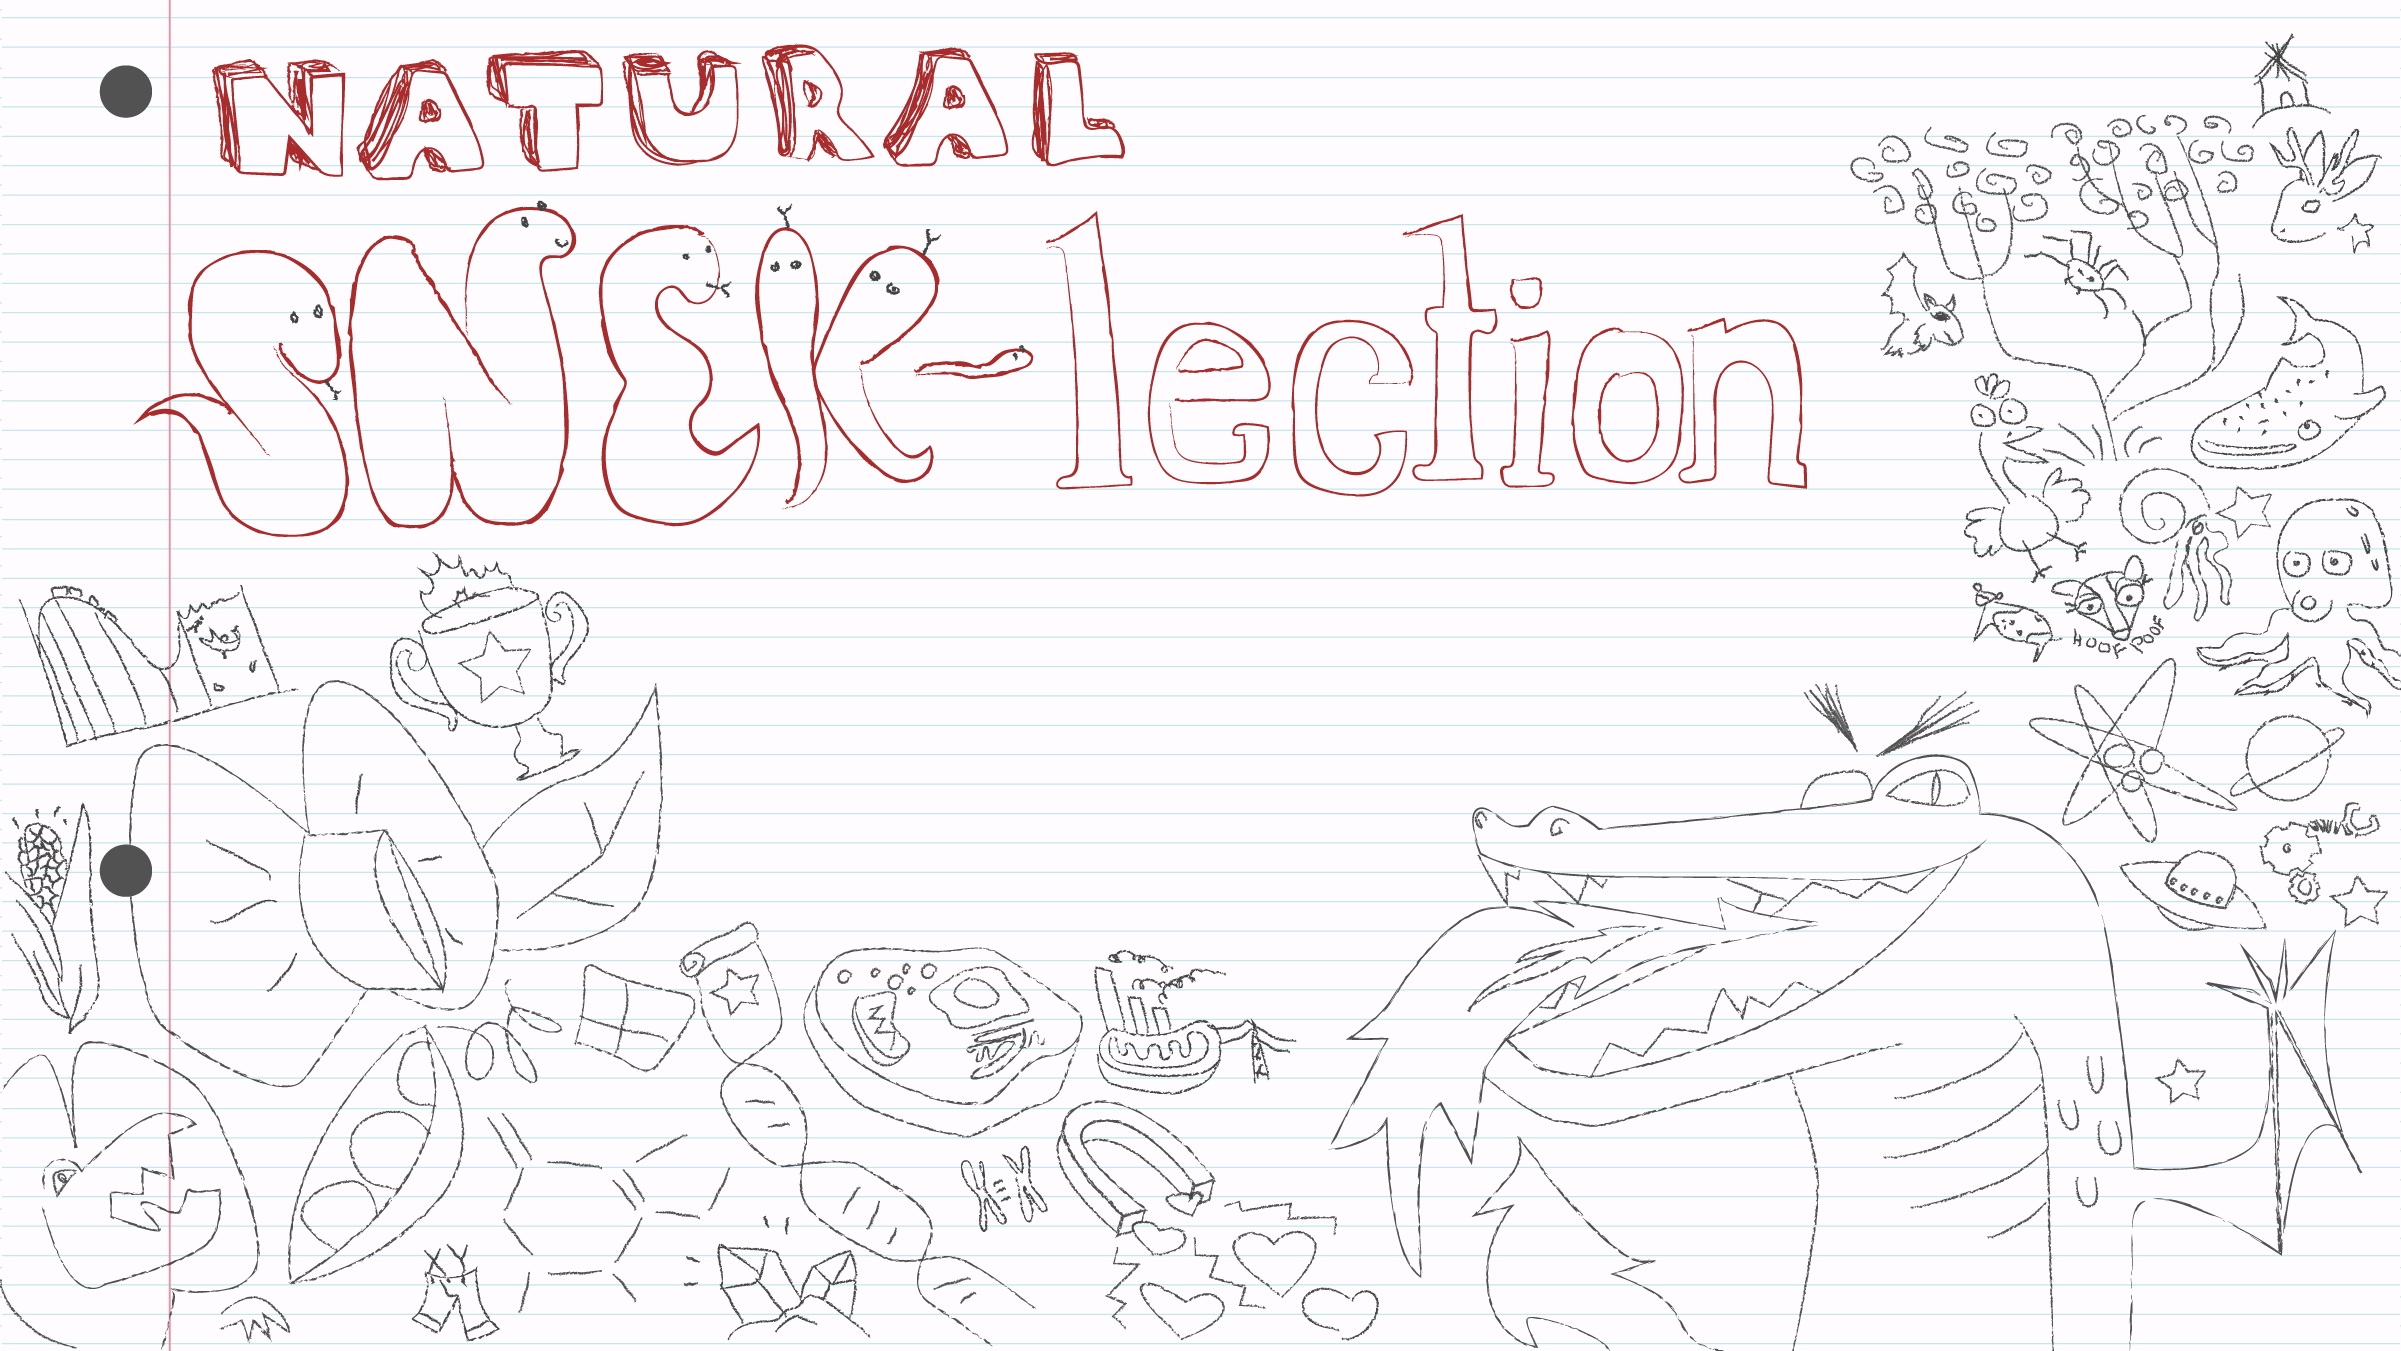 NATURAL
SNEK-lection
HOOF POOF